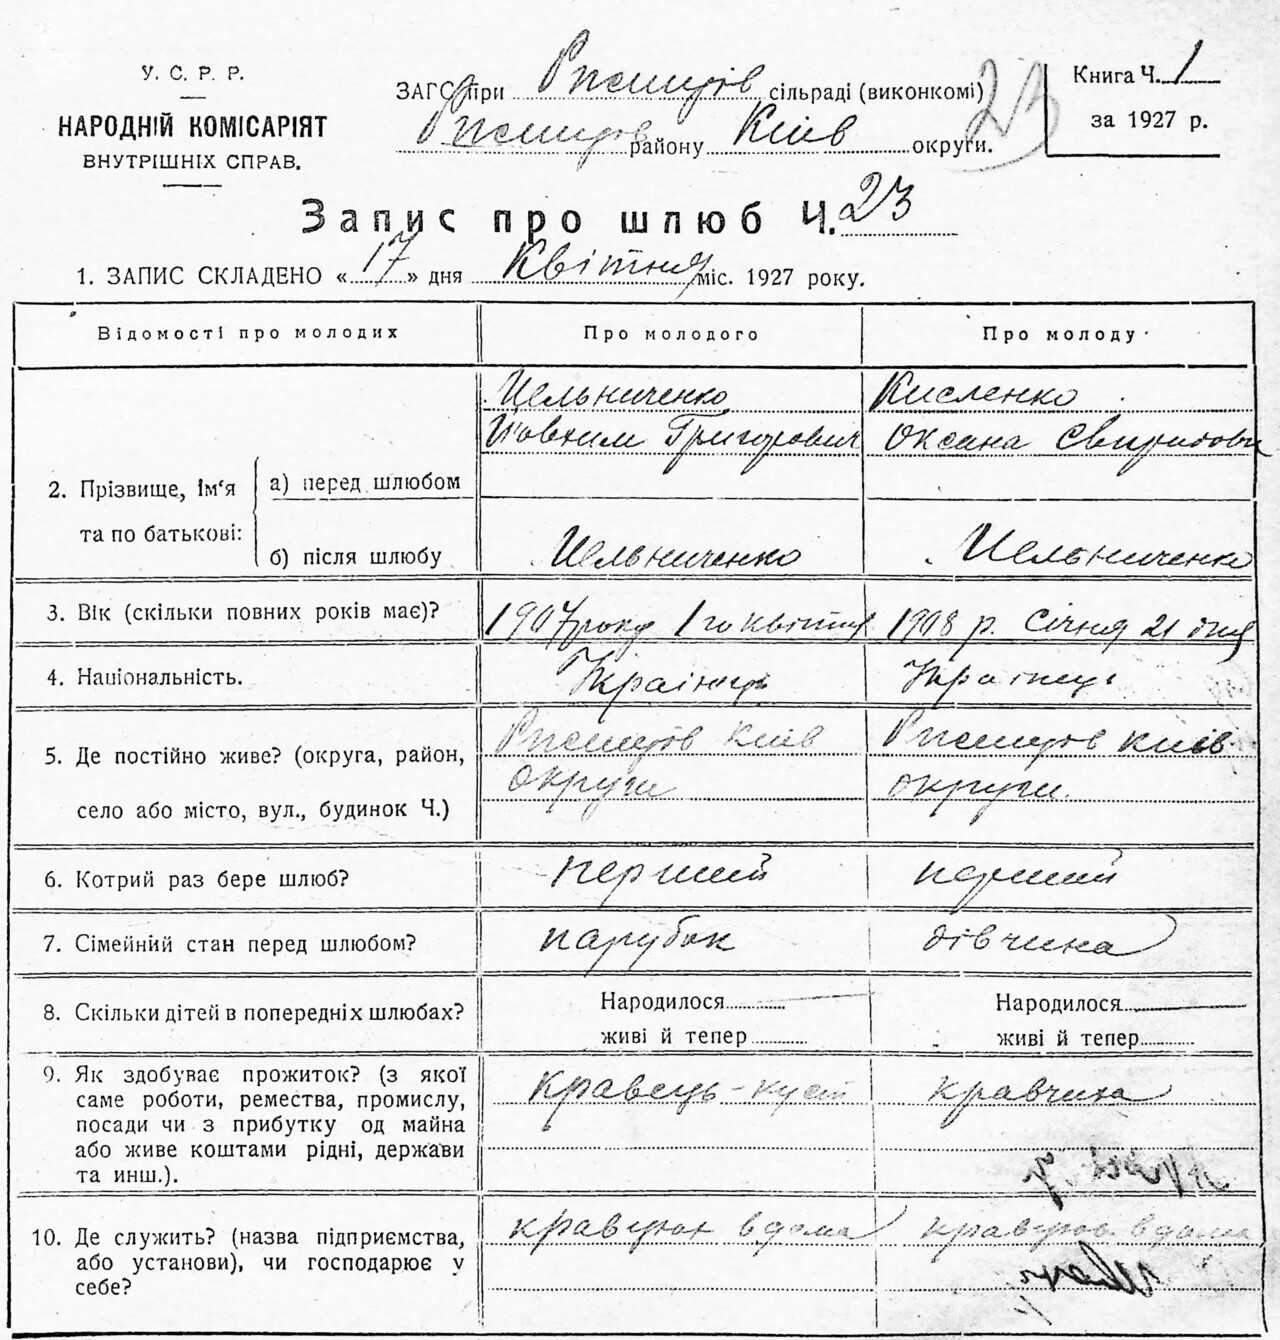 У. С. Р. Р.
НАРОДНІЙ КОМІСАРІЯТ
ВНУТРІШНІХ СПРАВ.
ЗАГС при Ржищів сільраді (виконкомі)
Ржищів району Київ округи.
23
Книга Ч. 1
за 1927 р.
Запис про шлюб Ч. 23
1. ЗАПИС СКЛАДЕНО « 17 » дня Квітня міс. 1927 року.
Відомості про молодих Про молодого Про молоду
2. Прізвище, Ім‘я та по батькові:
а) перед шлюбом
Мельниченко Кисленко
Йовхим Григорович Оксана
б) після шлюбу Мельниченко Мельниченко
3. Вік (скільки повних років має)? 1907 року 1го квітня 1908 р. Січня 21 дня
4. Національність. Українець Українець
5. Де постійно живе? (округа, район,
село або місто, вул., будинок Ч.)
Ржищів Київ Ржищів Київ
округи округи.
6. Котрий раз бере шлюб? перший перший
7. Сімейний стан перед шлюбом? парубок дівчина
8. Скільки дітей в попередніх шлюбах?
Народилося Народилося
живі й тепер живі й тепер
9. Як здобуває прожиток? (з якої
саме роботи, ремества, промислу,
посади чи з прибутку од майна
або живе коштами рідні, держави
та инш.).
кравець-куст кравчиха
10. Де служить? (назва підприємства,
або установи), чи господарює у
себе?
вдома вдома